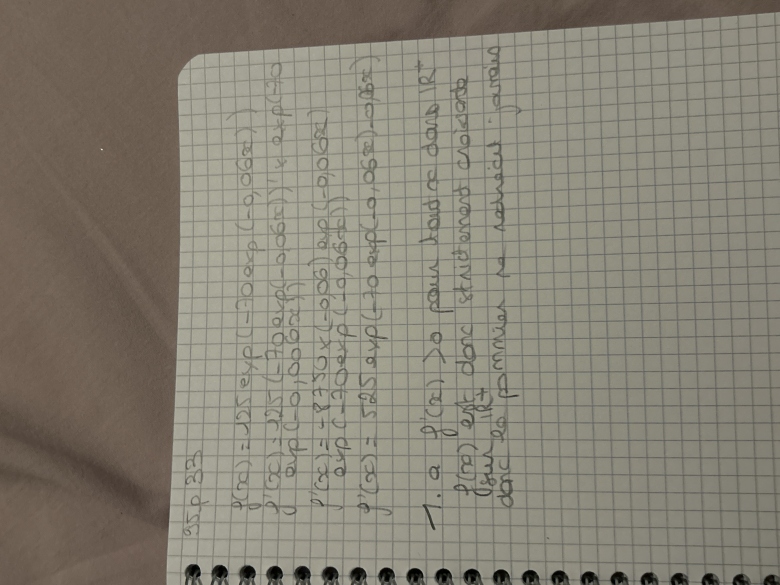 95 p 33
f(x) = 125 exp(-70 exp(-0,06x))
f'(x) = 125 (-70 exp(-0,06x))' x exp(-70
exp(-0,006x))
f'(x) = -8750 x (-0,06) exp(-0,06x)
exp(-70 exp(-0,06x))
f'(x) = 525 exp(-70 exp(-0,06x) -0,06x)
1. a f'(x) > 0 pour tout x dans IR+
f(x) est donc strictement croissante
sur IR+
donc le pommier ne rétrécit jamais